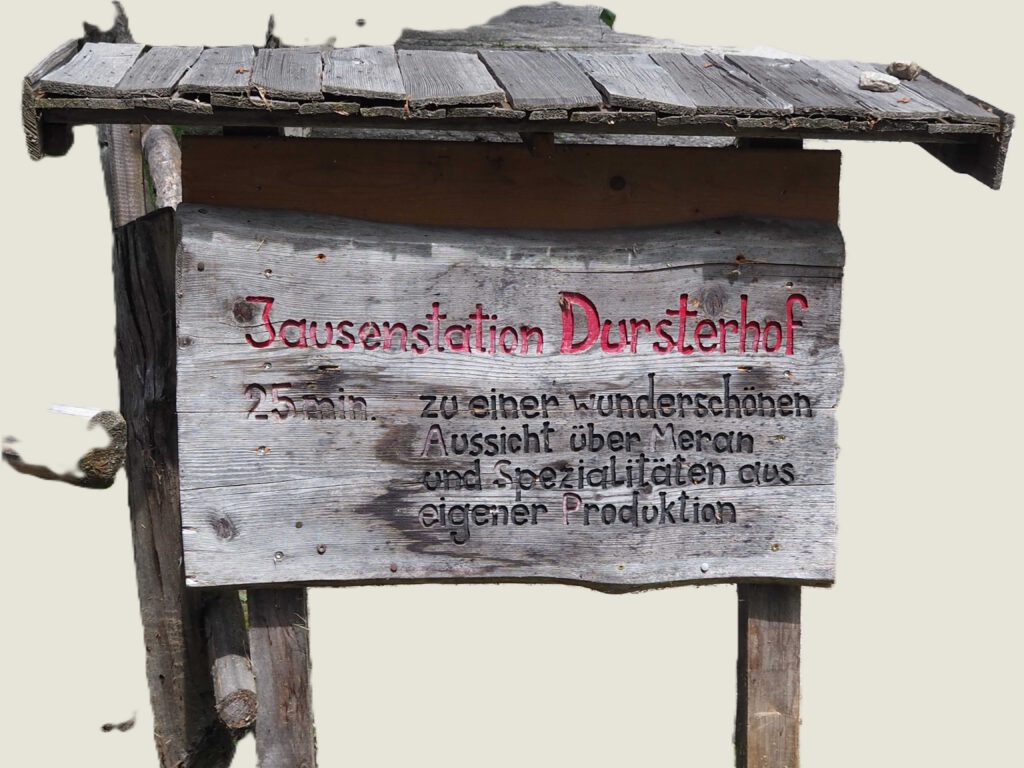 Jausenstation Dursterhof
25 min. zu einer wunderschönen
Aussicht über Meran
und Spezialitäten aus
eigener Produktion